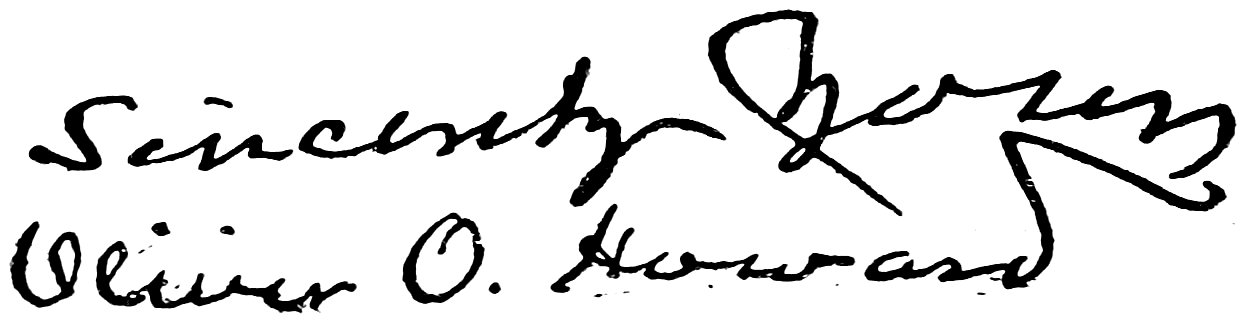 Sincerely Yours
Oliver O. Howard